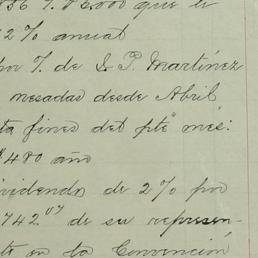 que le
2% anual
por T. de L. P. Martínez
mesadas desde Abril
ta fines del pte mes:
$480 año
ividendo de 2% por
742 07 de su represen-
te en la Convención